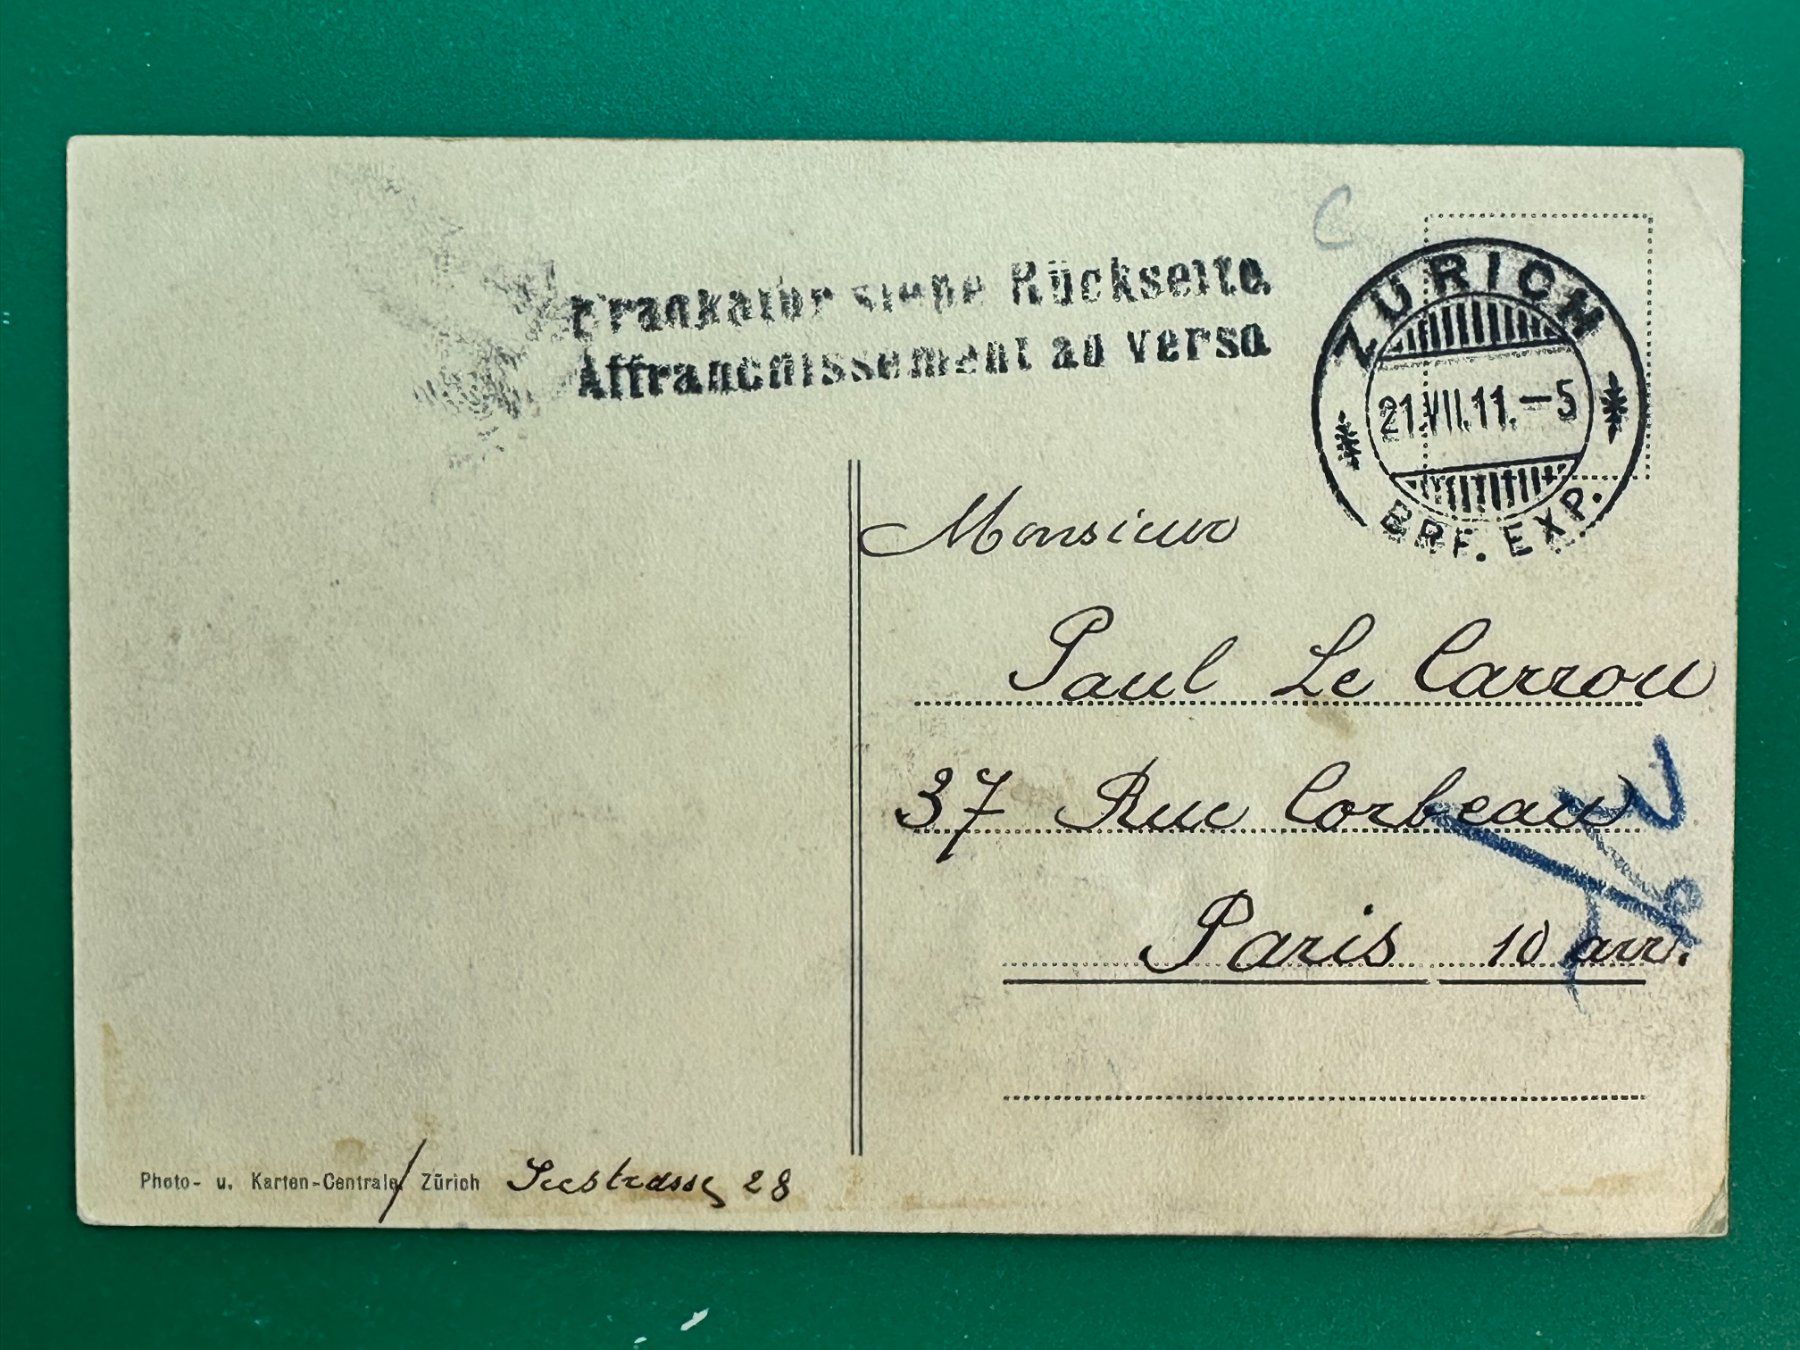 Frankatur siehe Rückseite.
Affranchissement au verso
C
ZÜRICH
21.VII.11.–5
BRF. EXP.
Monsieur
Paul Le Carrou
37 Rue Corbeau
Paris 10 arr.
Photo- u. Karten-Centrale, Zürich Seestrasse 28